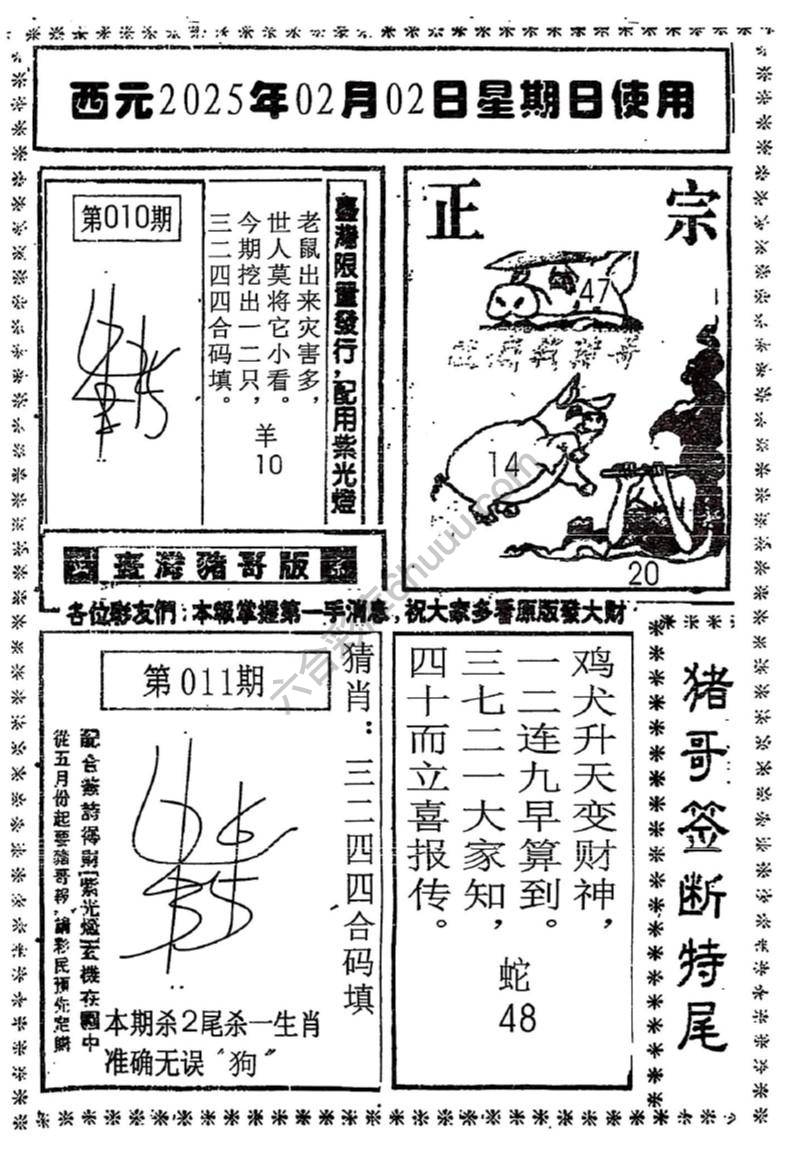 西元2025年02月02日星期日使用
第010期
臺灣限量發行，配用紫光燈
老鼠出来灾害多，
世人莫将它小看。
今期挖出一二只，
三二四四合码填。
羊
10
正宗
47
14
20
臺灣豬哥版
各位彩友們：本報掌握第一手消息，祝大家多看原版發大财
第011期
猜肖：三二四四合码填
從五月份起要豬哥報，請彩民預先定購
本期杀2尾杀一生肖
准确无误“狗”
鸡犬升天变财神，
一二连九早算到。
三七二一大家知，
四十而立喜报传。
蛇
48
猪哥签断特尾
六合彩库chuuu.com